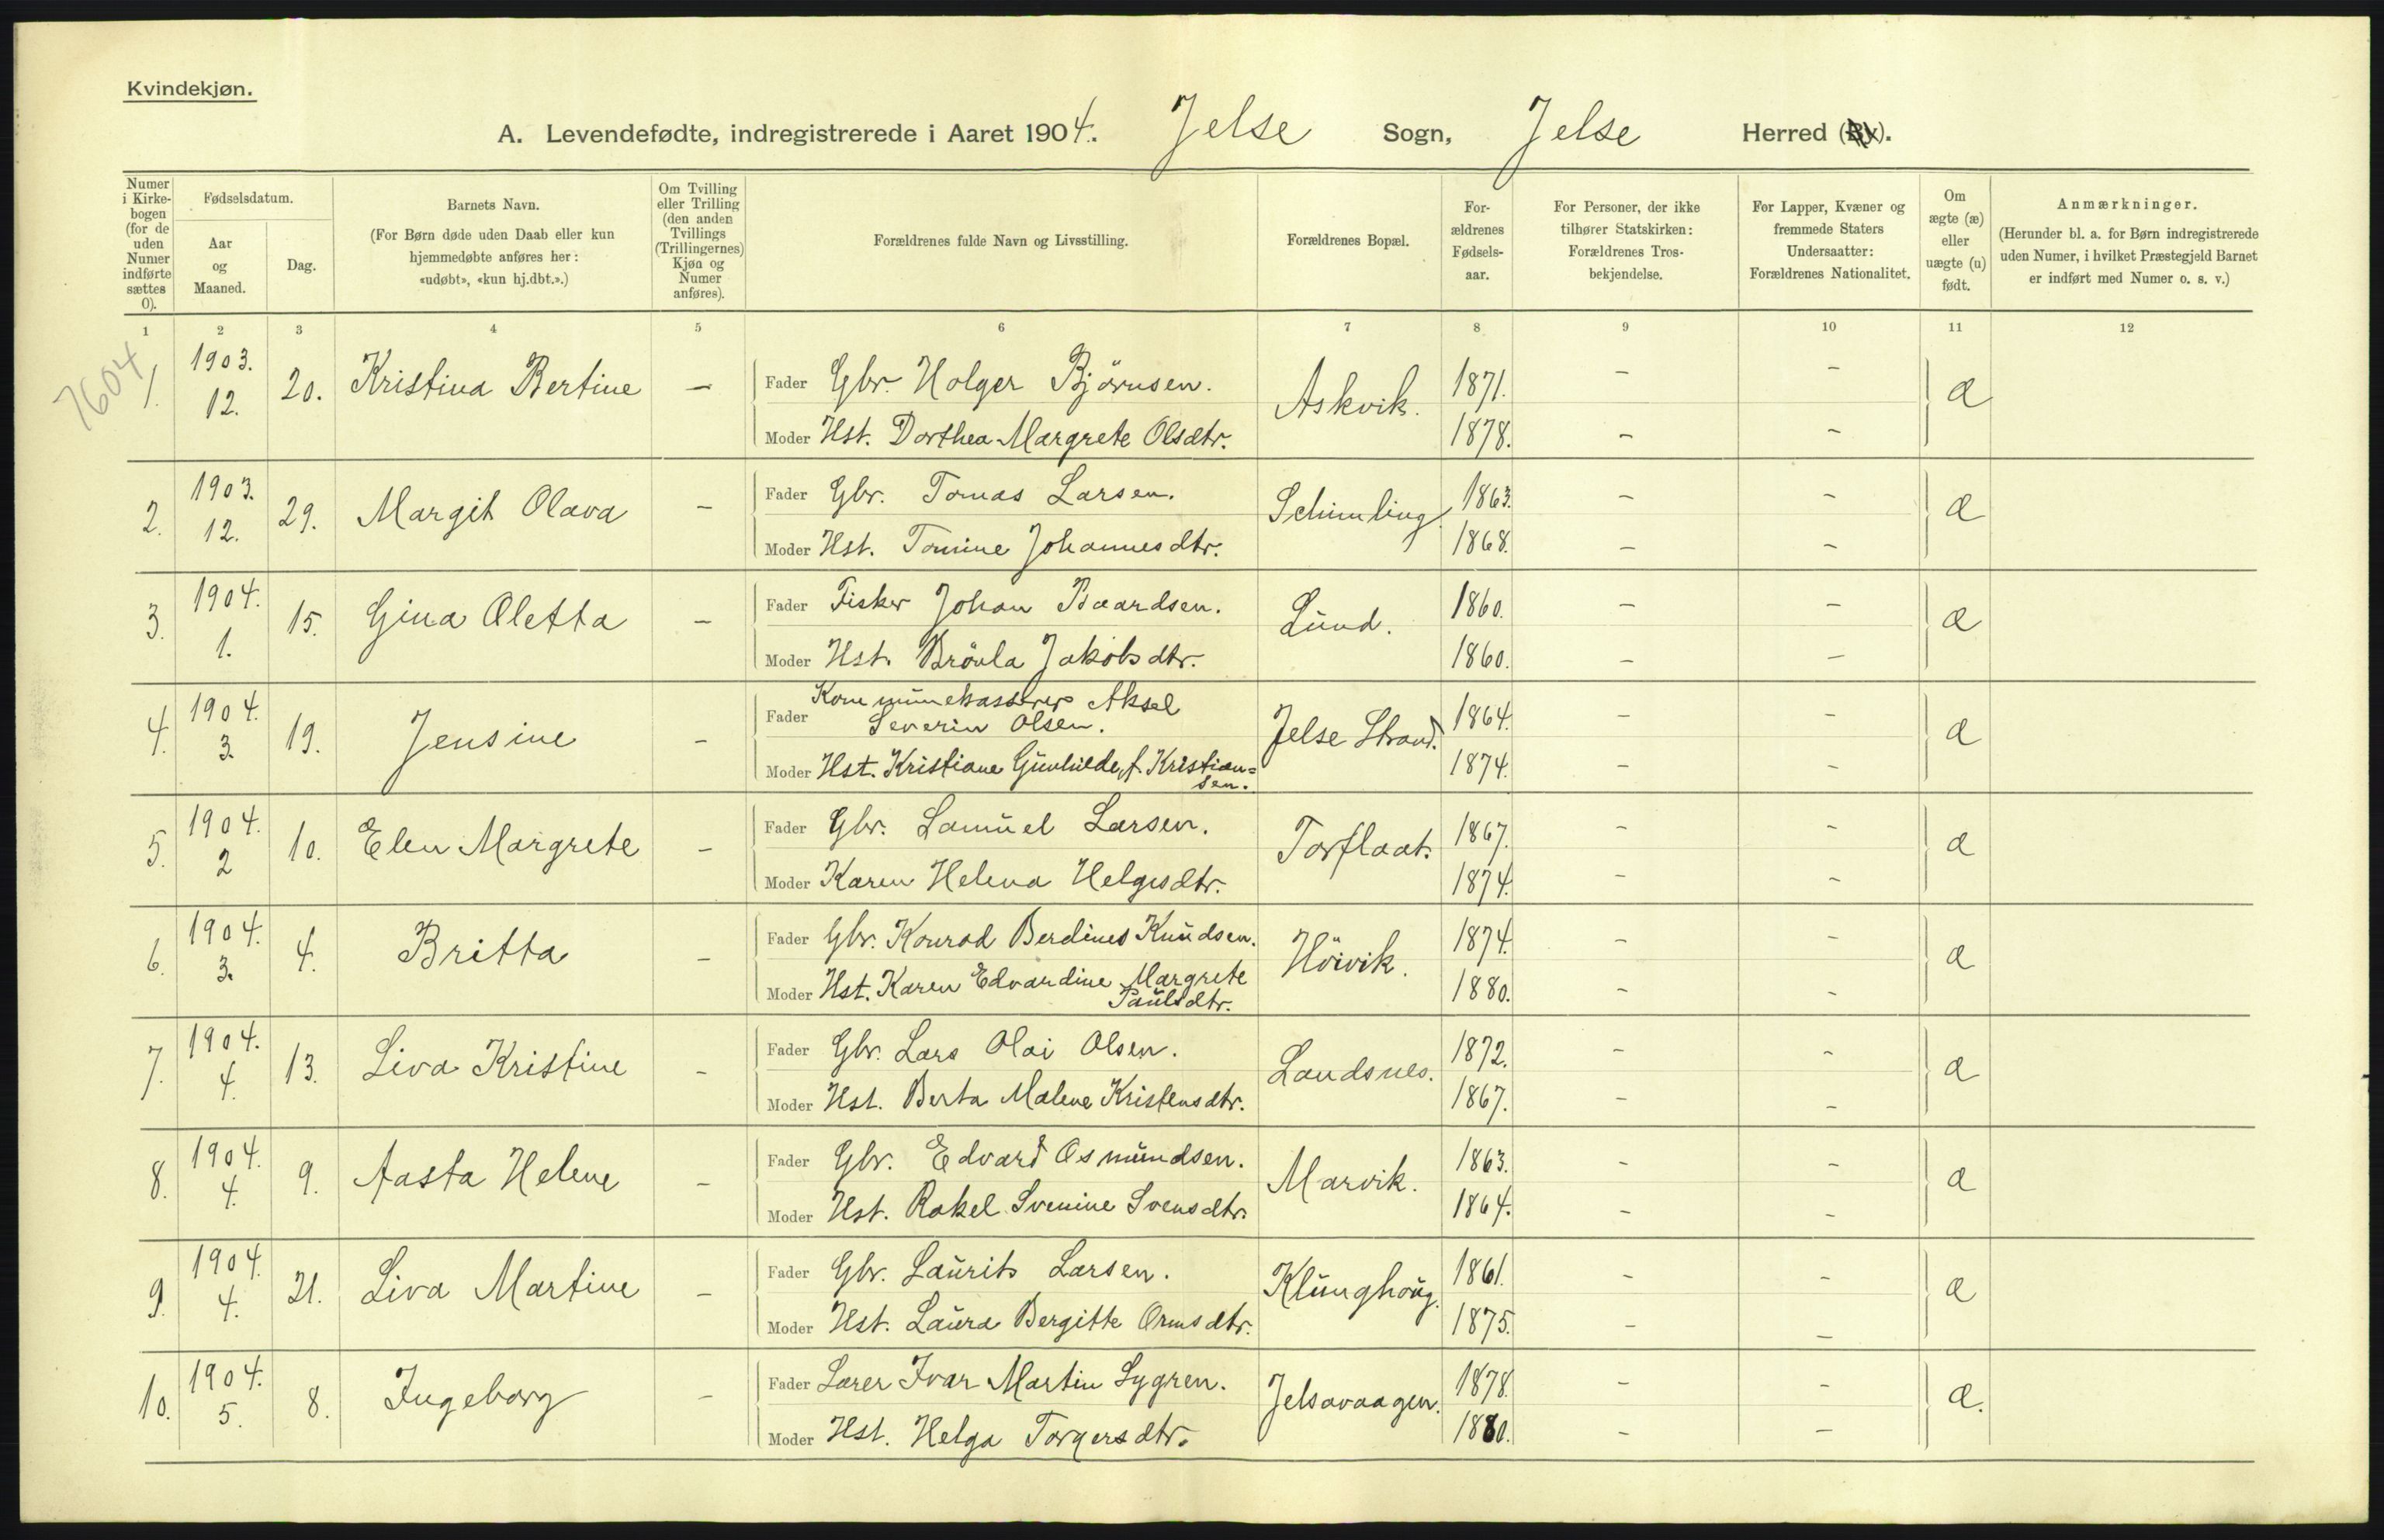 Kvindekjøn.
A. Levendefødte, indregistrerede i Aaret 1904. Jelse Sogn, Jelse Herred (By).
Numer i Kirkebogen (for de uden Numer indførte sættes 0).
Fødselsdatum.
Aar og Maaned.
Dag.
Barnets Navn.
(For Børn døde uden Daab eller kun hjemmedøbte anføres her: «udøbt», «kun hj.dbt.».)
Om Tvilling eller Trilling (den anden Tvillings (Trillingernes) Kjøn og Numer anføres).
Forældrenes fulde Navn og Livsstilling.
Forældrenes Bopæl.
For-
ældrenes
Fødsels-
aar.
For Personer, der ikke
tilhører Statskirken:
Forældrenes Tros-
bekjendelse.
For Lapper, Kvæner og
fremmede Staters
Undersaatter:
Forældrenes Nationalitet.
Om
ægte (æ)
eller
uægte (u)
født.
Anmærkninger.
(Herunder bl. a. for Børn indregistrerede
uden Numer, i hvilket Præstegjeld Barnet
er indført med Numer o. s. v.)
1 2 3 4 5 6 7 8 9 10 11 12
7604
1. 1903. 12. 20. Kristina Bertine - Fader Gbr. Holger Björnsen. Askvik. 1871. - - æ
Moder Hst. Dorthea Margrete Olsdtr. 1878. - -
2. 1903. 12. 29. Margit Olava - Fader Gbr. Tomas Larsen. Schimling. 1863. - - æ
Moder Hst. Tomine Johannesdtr. 1868. - -
3. 1904. 1. 15. Gina Oletta - Fader Fisker Johan Baardsen. Lund. 1860. - - æ
Moder Hst. Brönla Jakobsdtr. 1860. - -
4. 1904. 3. 19. Jensine - Fader Kommunekasserer Aksel
Severin Olsen. Jelse Strand. 1864. - - æ
Moder Hst. Kristiane Gunhilde, f. Kristian=
sen. 1874. - -
5. 1904. 2 10. Elen Margrete - Fader Gbr. Samuel Larsen. Torflaat. 1867. - - æ
Moder Karen Helena Helgesdtr. 1874. - -
6. 1904. 3. 4. Britta - Fader Gbr. Konrad Berdines Knudsen. Höivik. 1874. - - æ
Moder Hst. Karen Edvardine Margrete
Paulsdtr. 1880. - -
7. 1904. 4. 13. Liva Kristine - Fader Gbr. Lars Olai Olsen. Landsnes. 1872. - - æ
Moder Hst. Berta Malene Kristensdtr. 1867. - -
8. 1904. 4. 9. Aasta Helene - Fader Gbr. Edvard Osmundsen. Marvik. 1863. - - æ
Moder Hst. Rakel Svenine Svensdtr. 1864. - -
9. 1904. 4. 21. Liva Martine - Fader Gbr. Laurits Larsen. Klunghoug. 1861. - - æ
Moder Hst. Laura Bergitte Ormsdtr. 1875. - -
10. 1904. 5. 8. Ingeborg - Fader Lærer Ivar Martin Lygren. Jelsavaagen. 1878. - - æ.
Moder Hst. Helga Torgersdtr. 1880. - -